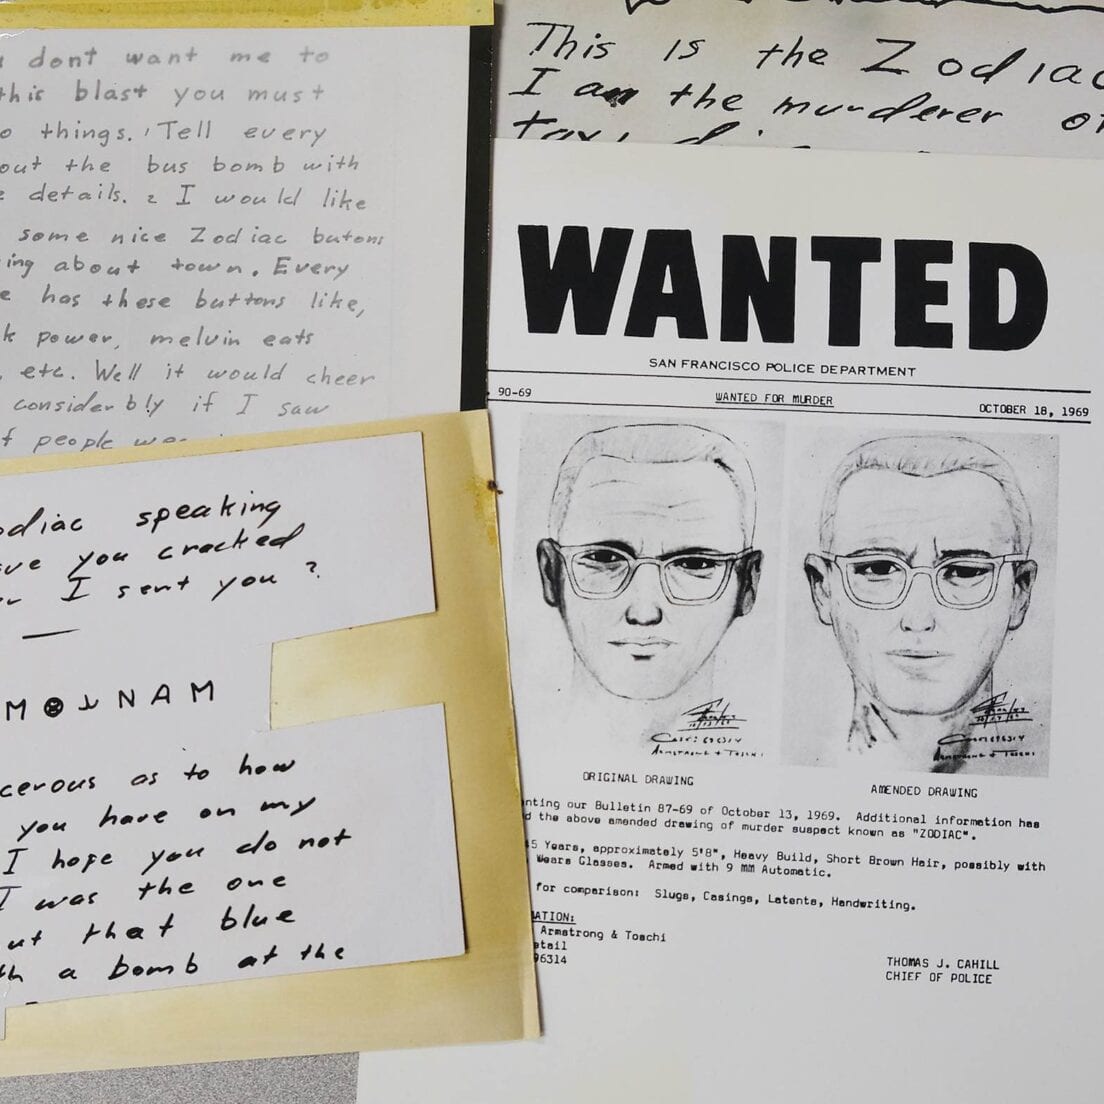 dont want me to
this blast you must
things. Tell every
out the bus bomb with
details. 2 I would like
some nice Zodiac butons
ing about town. Every
e has these buttons like,
k power, melvin eats
, etc. Well it would cheer
considerbly if I saw
f people
odiac speaking
ve you cracked
I sent you ?
M NAM
cerous as to how
you have on my
I hope you do not
I was the one
ut that blue
th a bomb at the
This is the Zodiac
I am the murderer of
WANTED
SAN FRANCISCO POLICE DEPARTMENT
90-69 WANTED FOR MURDER OCTOBER 18, 1969
ARMSTRONG + TOSCHI
ARMSTRONG + TOSCHI
ORIGINAL DRAWING AMENDED DRAWING
nting our Bulletin 87-69 of October 13, 1969. Additional information has
d the above amended drawing of murder suspect known as "ZODIAC".
5 Years, approximately 5'8", Heavy Build, Short Brown Hair, possibly with
Wears Glasses. Armed with 9 MM Automatic.
for comparison: Slugs, Casings, Latents, Handwriting.
ATION:
Armstrong & Toschi
etail
96314
THOMAS J. CAHILL
CHIEF OF POLICE